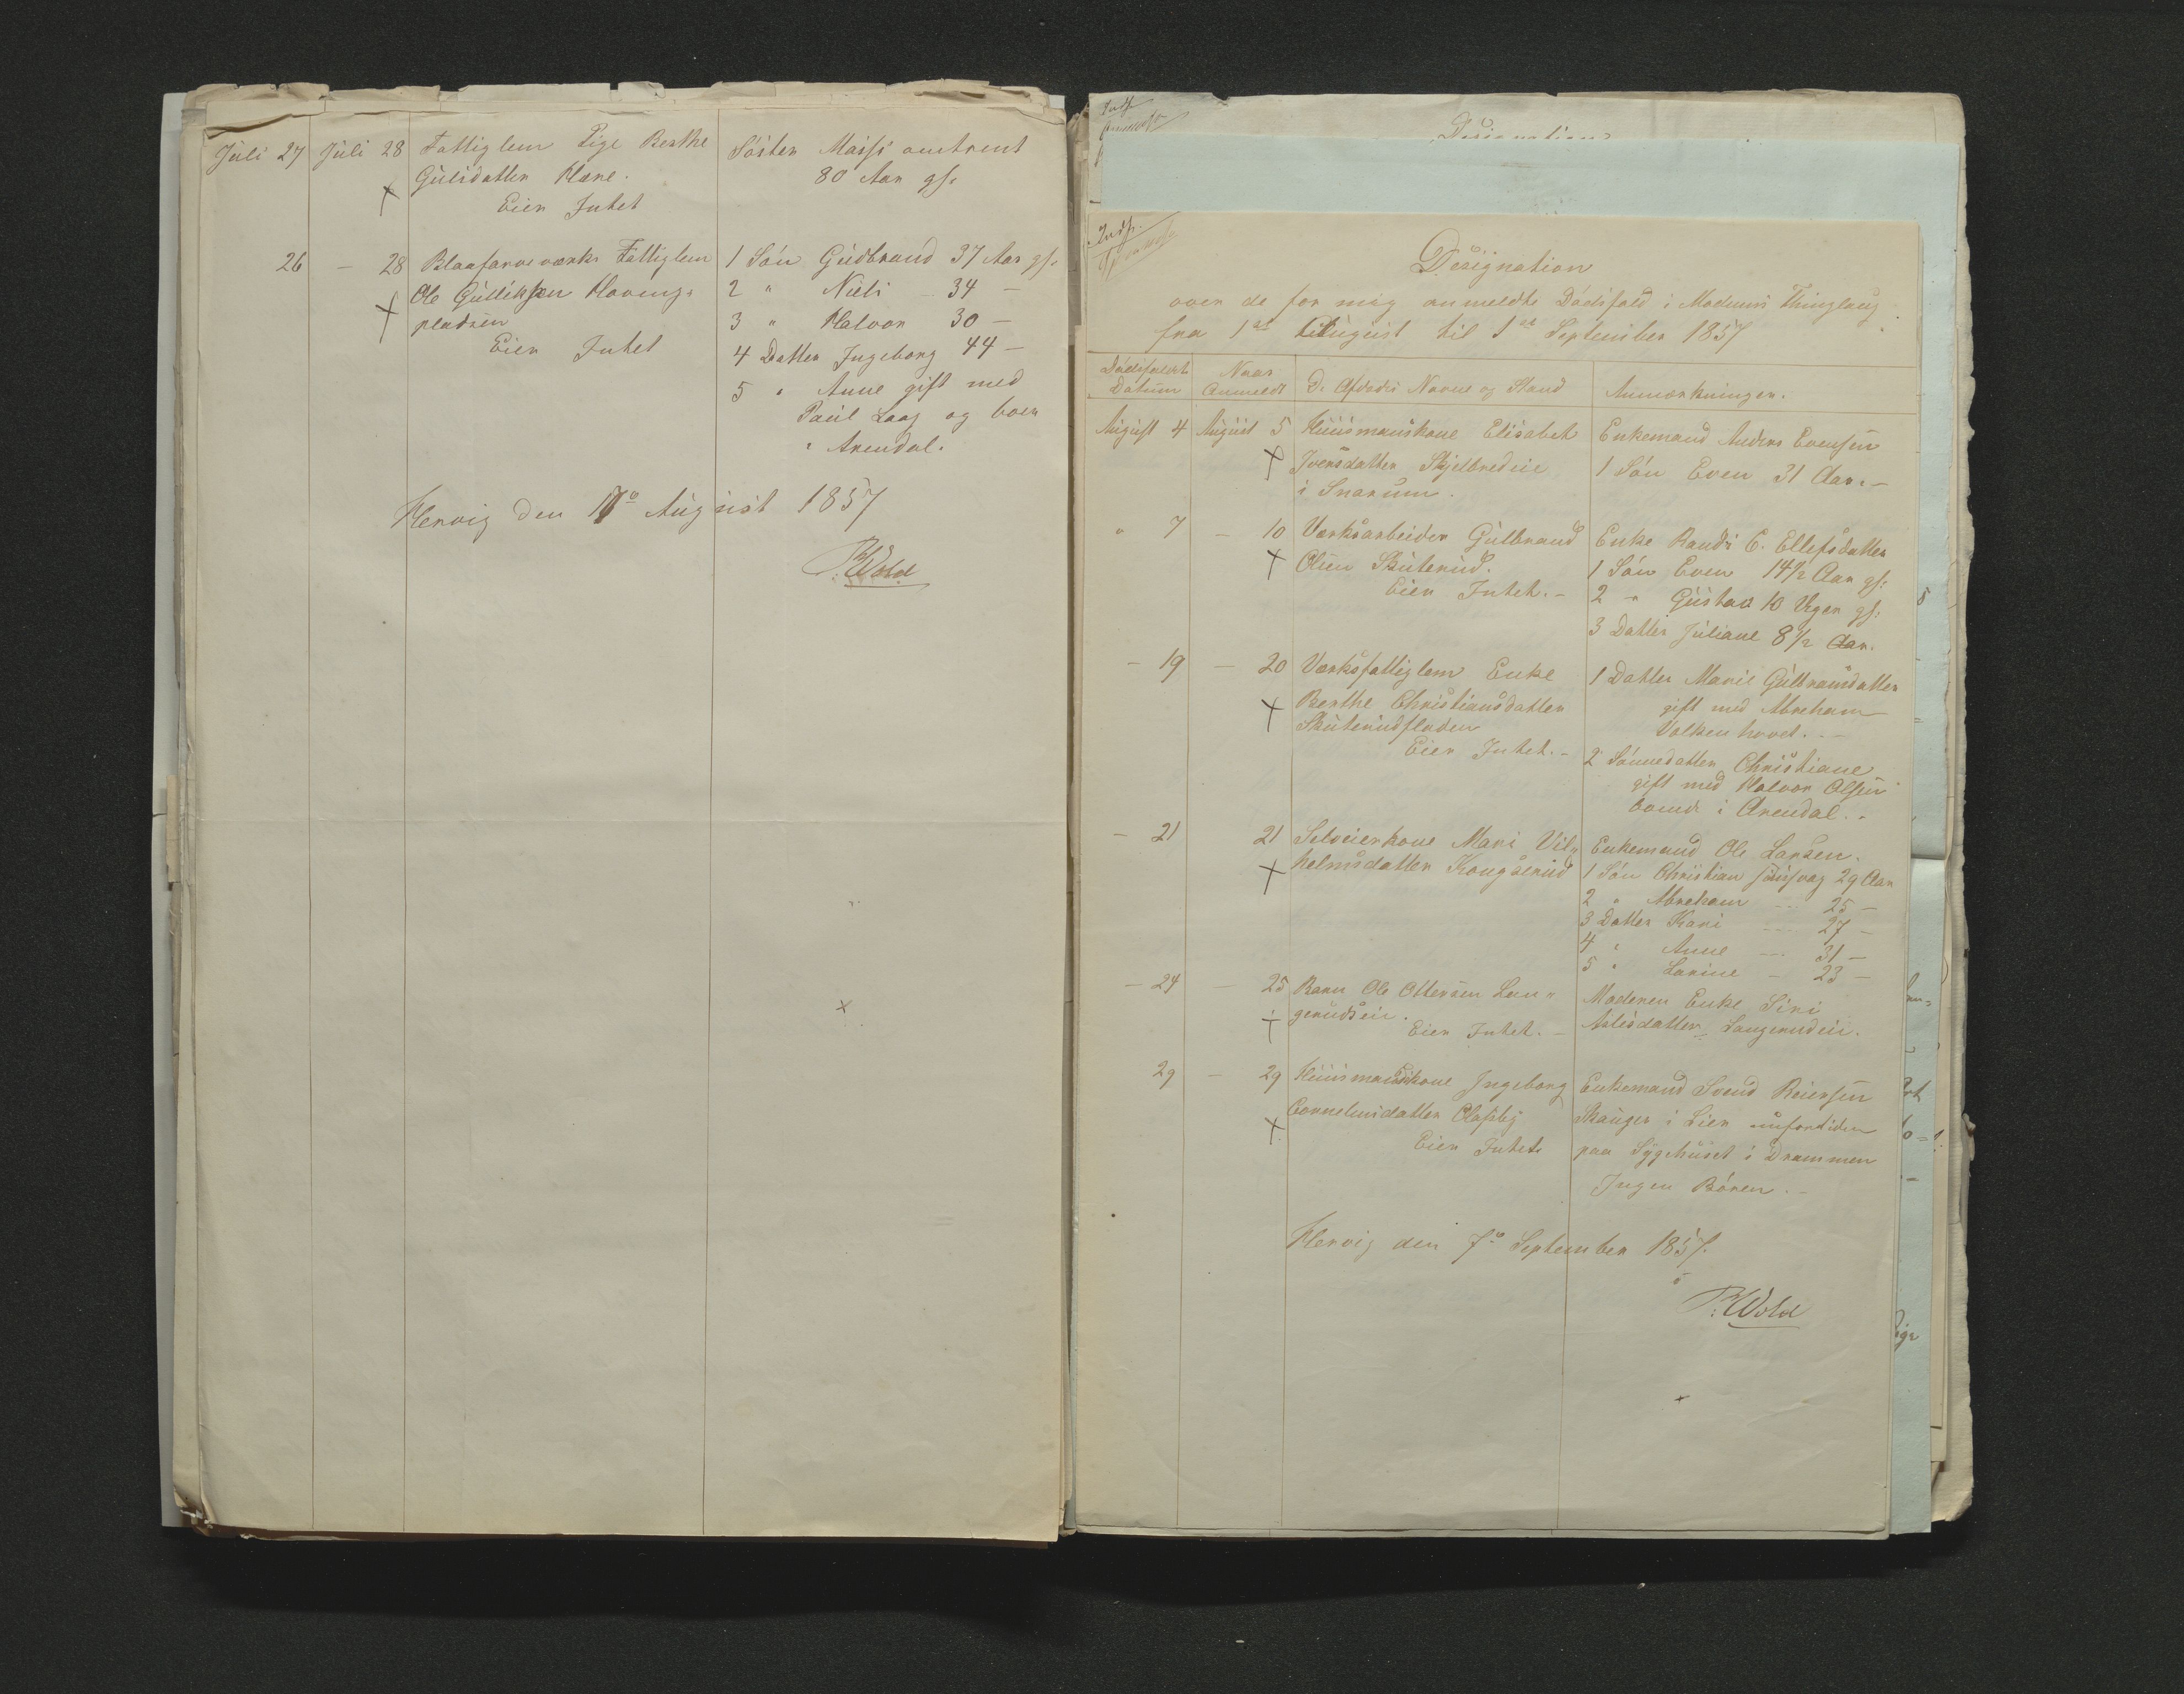 Juli 27 Juli 28 Fattiglem Pige Berthe Søster Maiss omtrent
Gulsdatter Hære. 80 Aar gl.
Eier Intet
26 — 28 Blaafarveværks Fattiglem 1 Søn Gudbrand 37 Aar gl.
Ole Gulliksen Hovengs= 2 " Niels — 34 —
pladsen 3 " Halvor 30 —
Eier Intet 4 Datter Ingeborg 44 —
5 " Anne gift med
Paul Laag og boer
i Arendal.
Hervig den 17de August 1857
P. Wold
Designation
over de for mig anmeldte Dødsfald i Modums Thinglaug
fra 1ste August til 1ste September 1857
Dødsfaldets Datum
Naar Anmeldt
De Afdødes Navne og Stand
Anmærkninger.
August 4 August 5 Huusmandskone Elisabet Enkemand Anders Evensen
Iversdatter Skjelbredeie 1 Søn Even 31 Aar. —
i Snarum.
" 7 — 10 Værksarbeider Gulbrand Enke Randi E. Ellefsdatter
Olsen Skuterud. 1 Søn Even 14½ Aar gl:
Eier Intet. — 2 " Gustav 10 Uger gl:
3 Datter Juliane 8½ Aar.
— 19 — 20 Værksfattiglem Enke 1 Datter Marie Gulbransdatter
Berthe Christiansdatter gift med Abraham
Skuterudfladen Valkenhovet. —
Eier Intet. — 2 Sønnedatter Christiane
gift med Halvor Olsen
boende i Arendal. —
— 21 21 Selveierkone Mari Vil= Enkemand Ole Larsen.
helmsdatter Kongsrud 1 Søn Christian 29 Aar
2 " Abraham — 25 —
3 Datter Kari — 27 —
4 " Anne — 31 —
5 " Larine — 23 —
— 24 — 25 Barn Ole Ottersen Lan= Moderen Enke Siri
gerudseie. Aslesdatter Langerudeie.
Eier Intet. —
29 — 29 Huusmandskone Ingeborg Enkemand Svend Reiersen
Corneliusdatter Olafsby Skauger i Lier nufortiden
Eier Intet. paa Sygehuset i Drammen
Ingen Børen. —
Hervig den 7de September 1857.
P. Wold